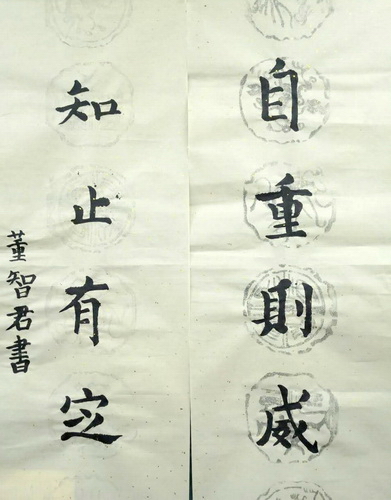 自重則威
知止有定
董智君書